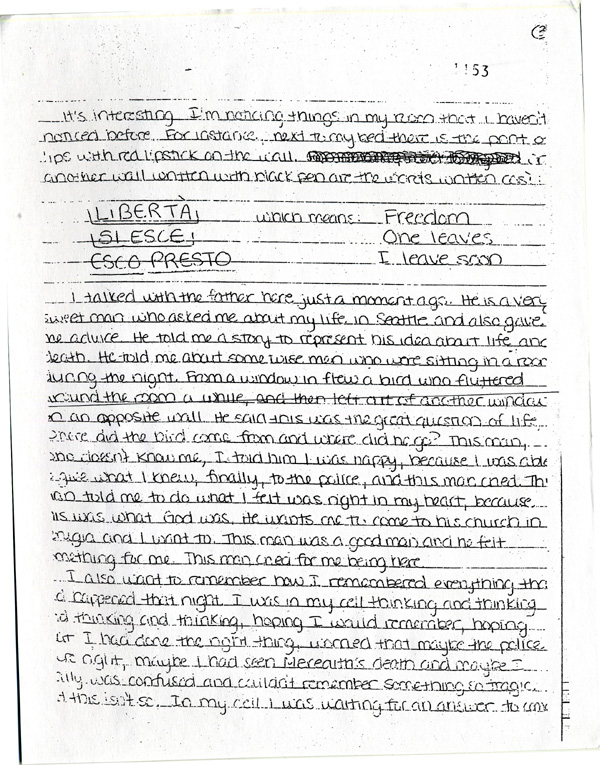 2
1153
It's interesting I'm noticing things in my room that I haven't
noticed before. For instance, next to my bed there is the print o
lips with red lipstick on the wall. in
another wall written with black pen are the words written così:
LIBERTÀ which means: Freedom
SI ESCE One leaves
ESCO PRESTO I leave soon
I talked with the father here just a moment ago. He is a very
sweet man who asked me about my life in Seattle and also gave
me advice. He told me a story to represent his idea about life and
death. He told me about some wise men who were sitting in a room
during the night. From a window in flew a bird who fluttered
around the room a while, and then left out of another window
on an opposite wall. He said this was the great question of life.
where did the bird come from and where did he go? This man,
who doesn't know me, I told him I was happy, because I was able
give what I knew, finally, to the police, and this man cried. Thi
man told me to do what I felt was right in my heart, because
this was what God was. He wants me to come to his church in
rugia and I want to. This man was a good man and he felt
mething for me. This man cried for me being here
I also want to remember how I remembered everything tha
d happened that night. I was in my cell thinking and thinking
d thinking and thinking, hoping I would remember, hoping
at I had done the right thing, worried that maybe the police
re right, maybe I had seen Meredith's death and maybe I
lly was confused and couldn't remember something so tragic.
t this isn't so. In my cell I was waiting for an answer to come